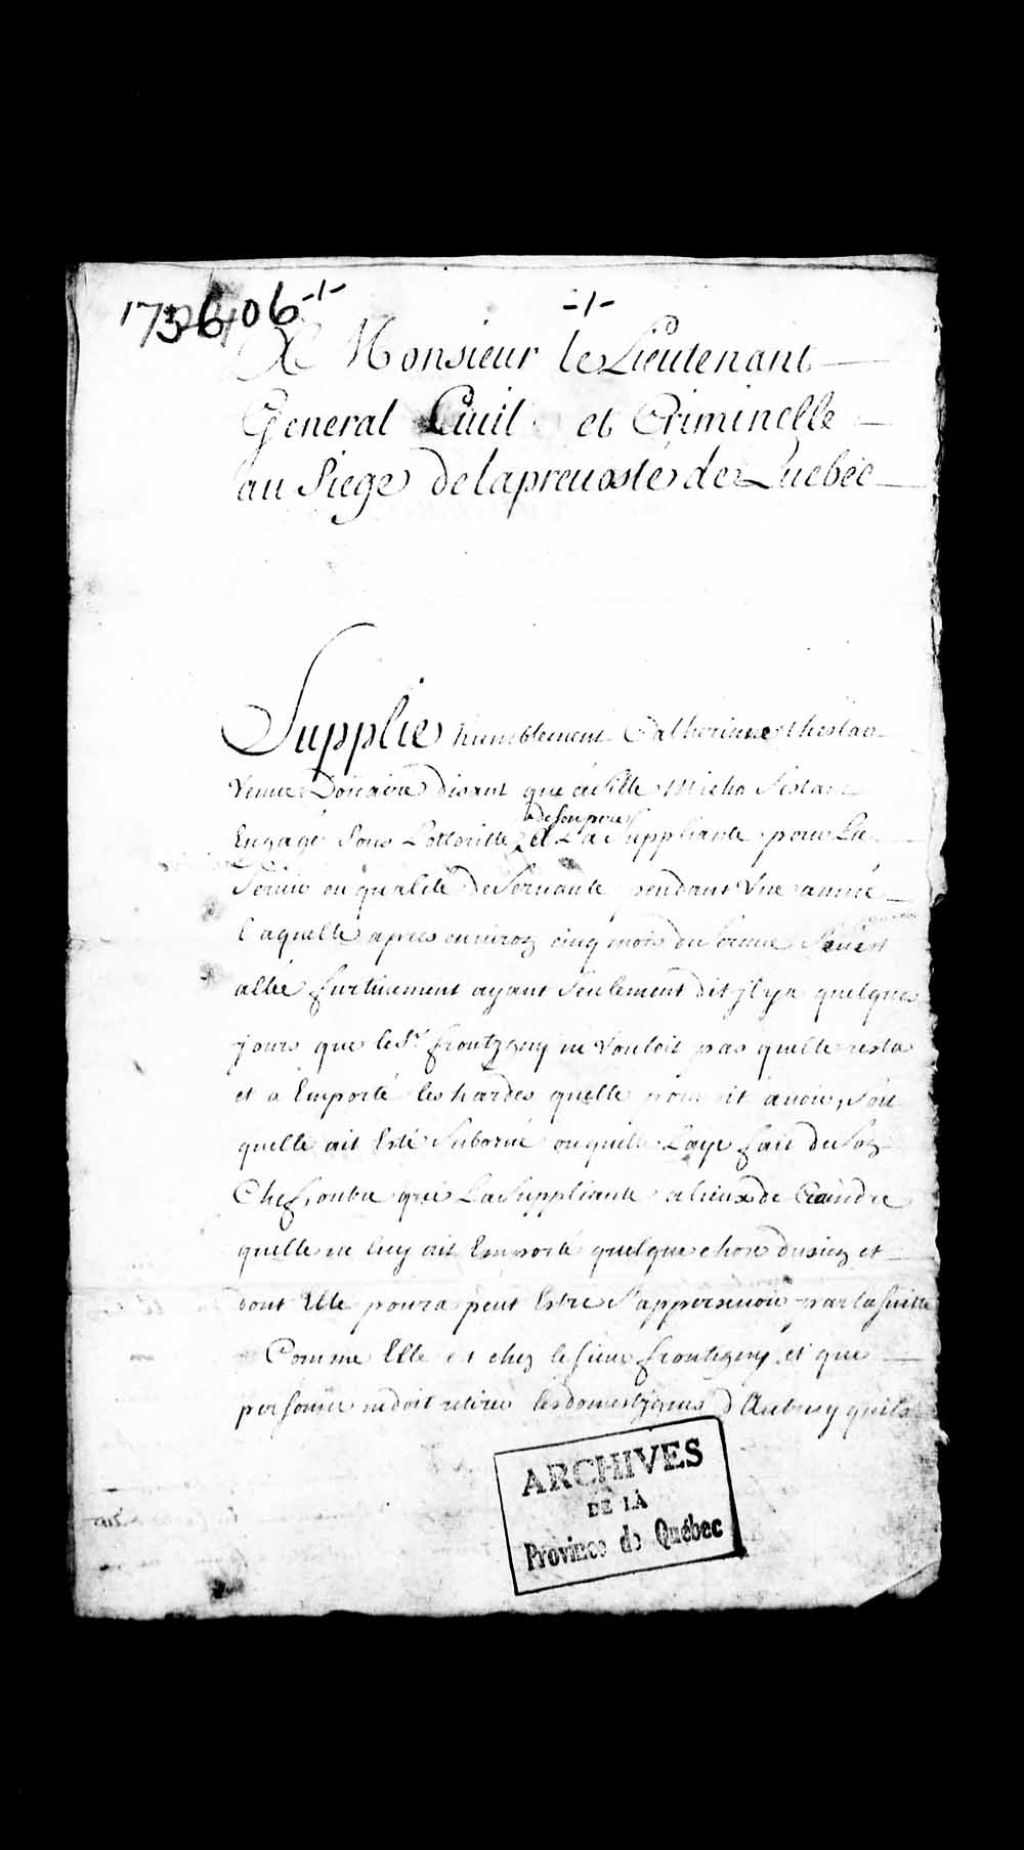 -1-
-1-
A Monsieur le Lieutenant
General Ciuil et Criminelle
au Siege de la preuosté de Quebec
Supplie humblement Catherinne
Veuue disant que
de son pere
Engagé Sous Lottoritté et La Suppliante pour La
Seruir en qualité de Seruante pendant Vne année
Laquelle apres enuiron cinq mois de seruice S'en est
allée furtiuement ayant Seulement dit jl y a quelques
jours que le Sr. frontigny ne Vouloit pas quelle resta
et a Emporté les hardes quelle pouuoit auoir, Soit
quelle ait Esté Suborné ou quelle Laye fait de Son
Chef, outre que La Suppliante a lieux de Craindre
quelle ne luy ait Emporté quelque chose du sien et
dont Elle poura peut Estre S'apperseuoir par la suitte
Comme Elle est chez le sieur frontigny et que
personne ne doit retirer les domestyques d'Autruy quils
ARCHIVES
DE LA
Province de Québec